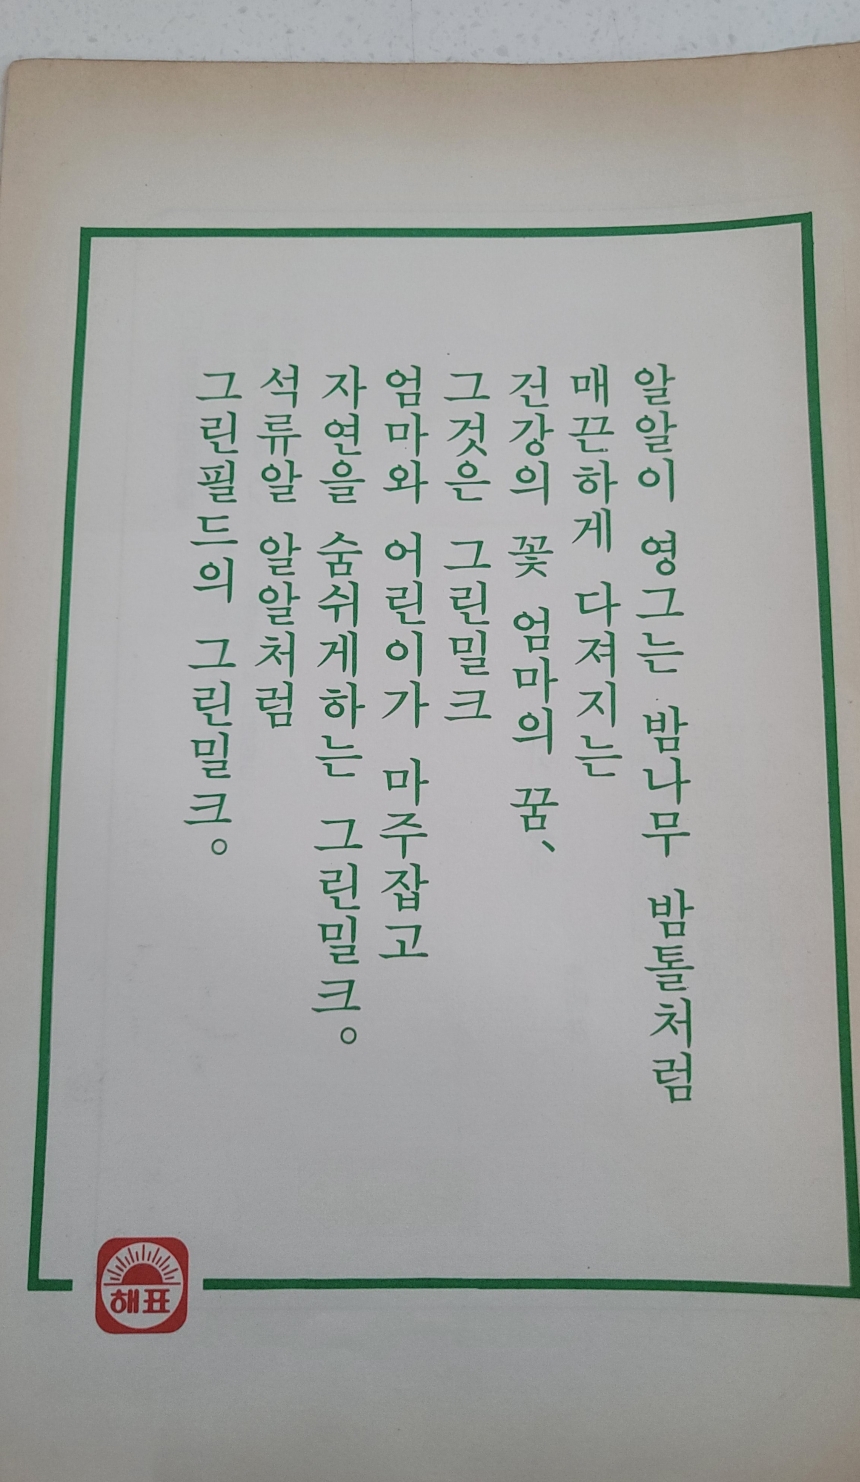 알알이 영그는 밤나무 밤톨처럼
매끈하게 다져지는
건강의 꽃 엄마의 꿈、
그것은 그린밀크
엄마와 어린이가 마주잡고
자연을 숨쉬게하는 그린밀크。
석류알 알알처럼
그린필드의 그린밀크。
해표